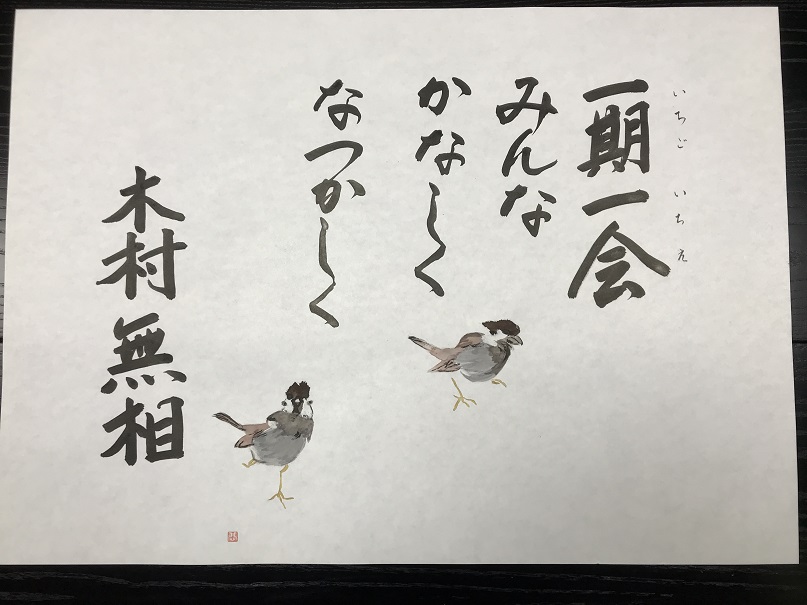 いちご いちえ
一期一会
みんな
かなしく
なつかしく
木村無相